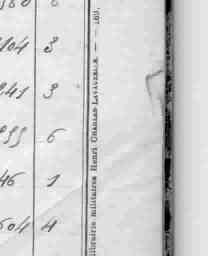 6
404 3
241 3
6
46 1
504 4
Librairie militaires Henri CHARLES-LAVAUZELLE — — 169.